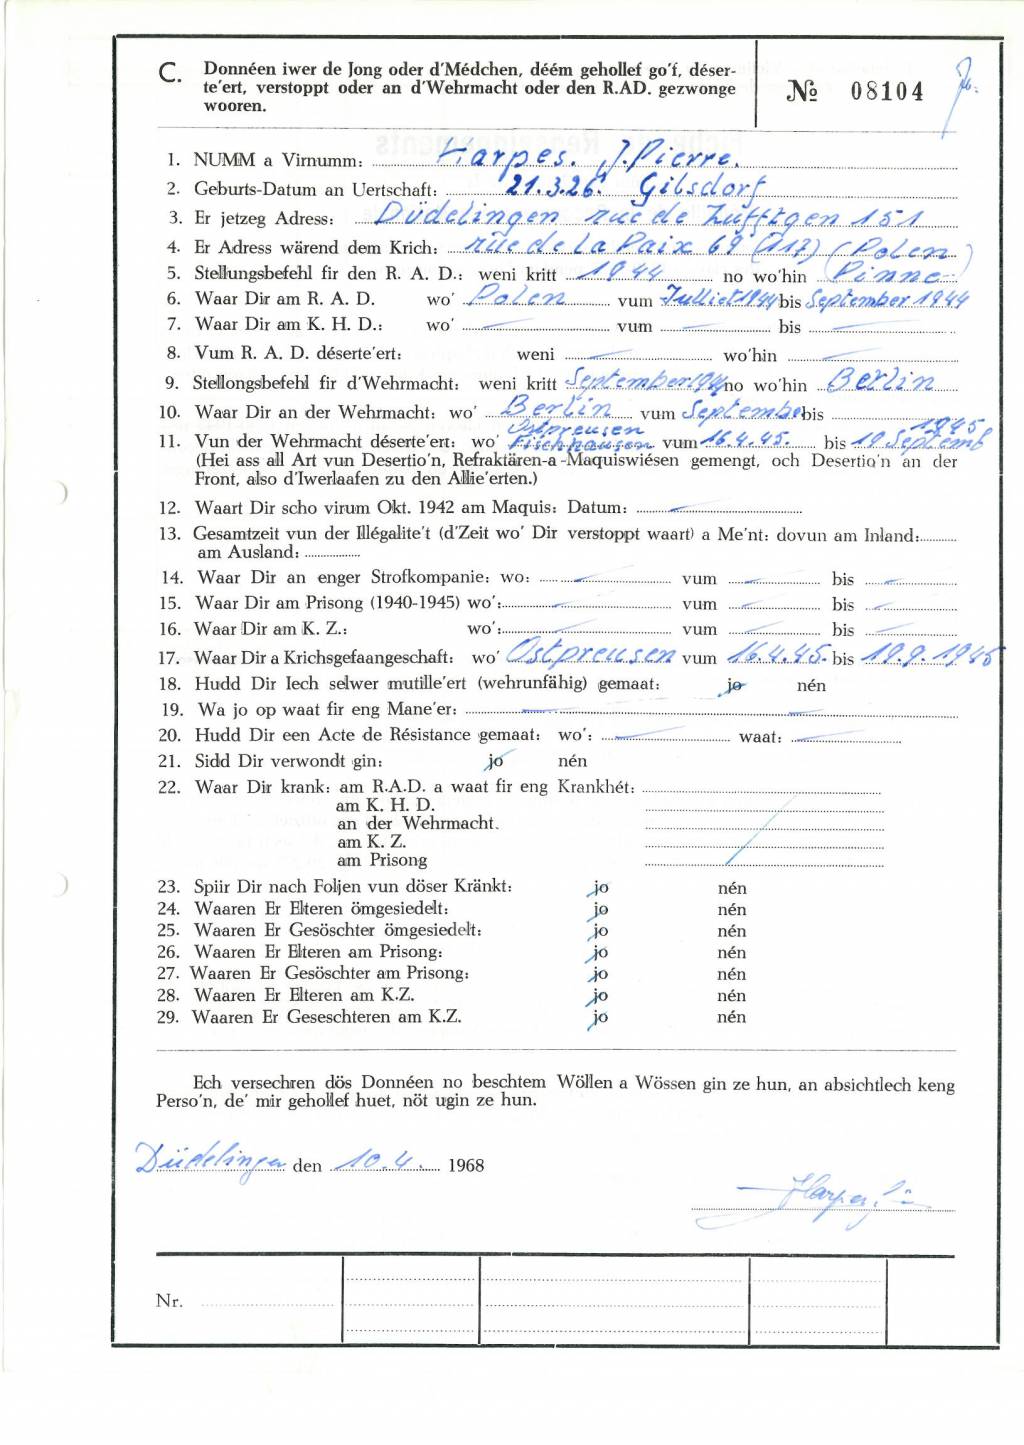 C. Donnéen iwer de Jong oder d'Médchen, déém gehollef go'f, déser-
te'ert, verstoppt oder an d'Wehrmacht oder den R.AD. gezwonge
wooren.
№ 08104
1. NUMM a Virnumm: Harpes. J. Pierre.
2. Geburts-Datum an Uertschaft: 21.3.26. Gilsdorf
3. Er jetzeg Adress: Düdelingen rue de Zufftgen 151
4. Er Adress wärend dem Krich: rue de la Paix 69 (117) (Polen)
5. Stellungsbefehl fir den R. A. D.: weni kritt 1944 no wo'hin Pinne
6. Waar Dir am R. A. D. wo' Polen vum Julliet 1944 bis September 1944
7. Waar Dir am K. H. D.: wo' — vum — bis —
8. Vum R. A. D. déserte'ert: weni — wo'hin —
9. Stellongsbefehl fir d'Wehrmacht: weni kritt September 1944 no wo'hin Berlin
10. Waar Dir an der Wehrmacht: wo' Berlin vum Septembe bis
Ostpreusen 1945
11. Vun der Wehrmacht déserte'ert: wo' Fischhausen vum 16.4.45. bis 19 Septemb
(Hei ass all Art vun Desertio'n, Refraktären-a-Maquiswiésen gemengt, och Desertio'n an der
Front, also d'Iwerlaafen zu den Allie'erten.)
12. Waart Dir scho virum Okt. 1942 am Maquis: Datum: —
13. Gesamtzeit vun der Illégalite't (d'Zeit wo' Dir verstoppt waart) a Me'nt: dovun am Inland:
am Ausland:
14. Waar Dir an enger Strofkompanie: wo: — vum — bis —
15. Waar Dir am Prisong (1940-1945) wo': — vum — bis —
16. Waar Dir am K. Z.: wo': — vum — bis —
17. Waar Dir a Krichsgefaangeschaft: wo' Ostpreusen vum 16.4.45. bis 19.9.1945
18. Hudd Dir Iech selwer mutille'ert (wehrunfähig) gemaat: jo nén
19. Wa jo op waat fir eng Mane'er: — —
20. Hudd Dir een Acte de Résistance gemaat: wo': — waat: —
21. Sidd Dir verwondt gin: jo nén
22. Waar Dir krank: am R.A.D. a waat fir eng Krankhét:
am K. H. D.
an der Wehrmacht.
am K. Z.
am Prisong
23. Spiir Dir nach Foljen vun döser Kränkt: jo nén
24. Waaren Er Elteren ömgesiedelt: jo nén
25. Waaren Er Gesöschter ömgesiedelt: jo nén
26. Waaren Er Elteren am Prisong: jo nén
27. Waaren Er Gesöschter am Prisong: jo nén
28. Waaren Er Elteren am K.Z. jo nén
29. Waaren Er Geseschteren am K.Z. jo nén
Ech versechren dös Donnéen no beschtem Wöllen a Wössen gin ze hun, an absichtlech keng
Perso'n, de' mir gehollef huet, nöt ugin ze hun.
Düdelingen den 10.4. 1968
Nr.